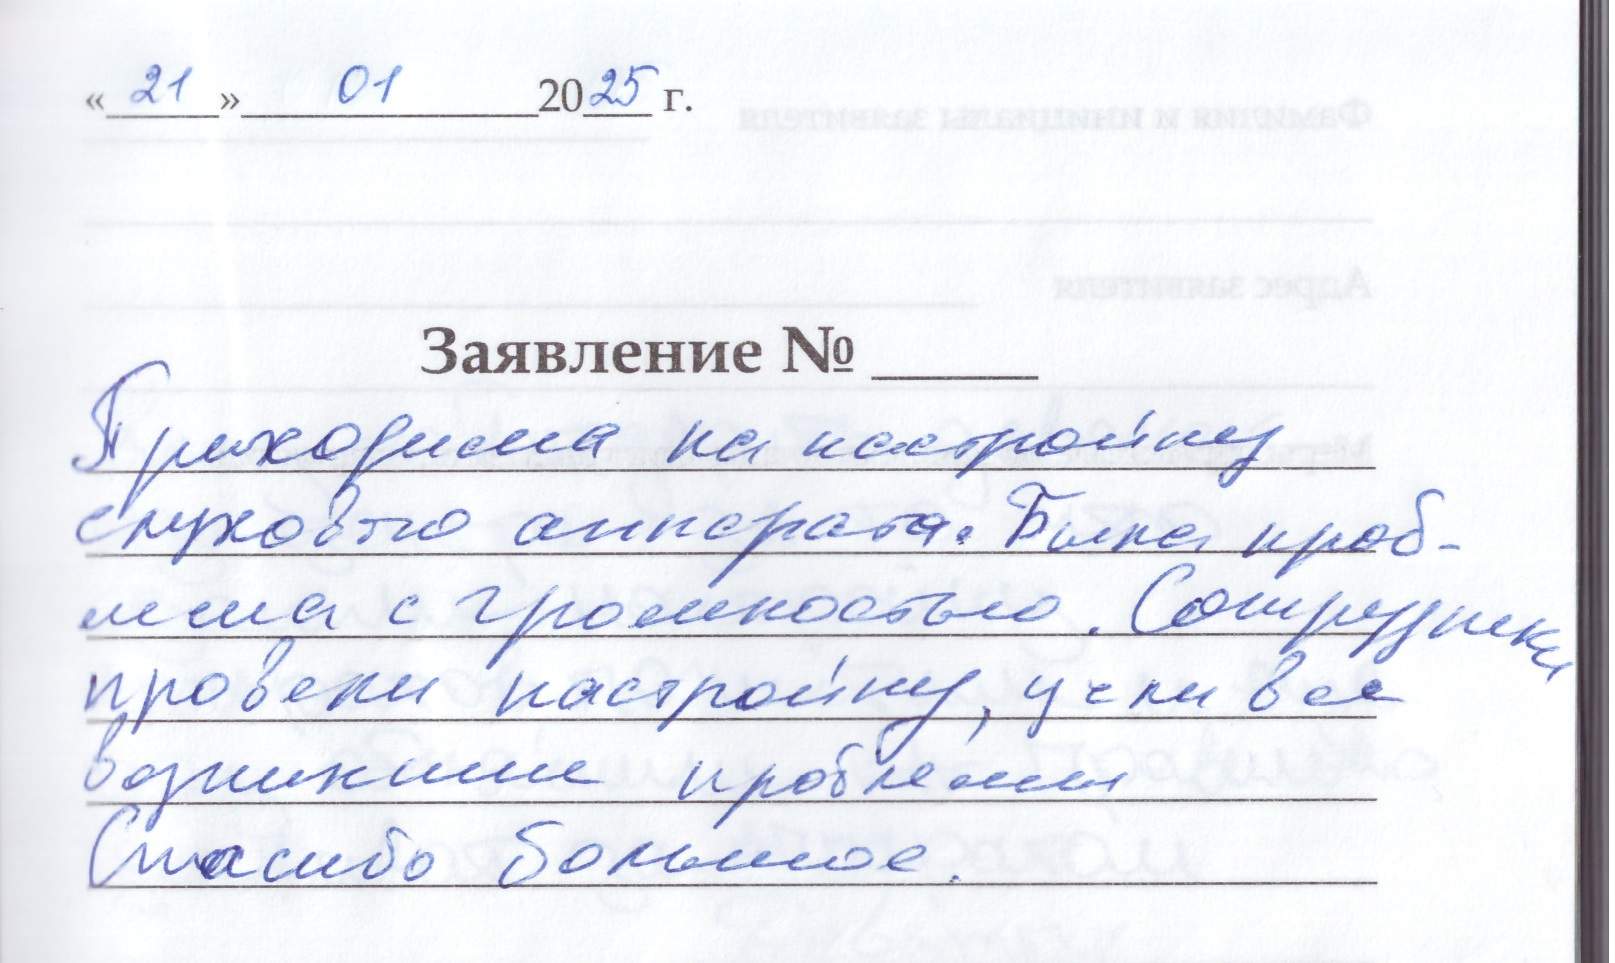 «21» 01 2025 г.
Заявление №
Приходила на настройку
слухового аппарата. Была проб-
лема с громкостью. Сотрудники
провели настройку, учли все
возникшие проблемы
Спасибо большое.